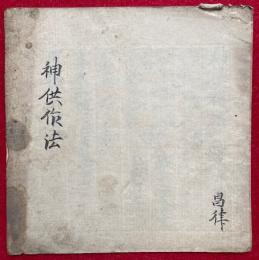 神供作法
昌律